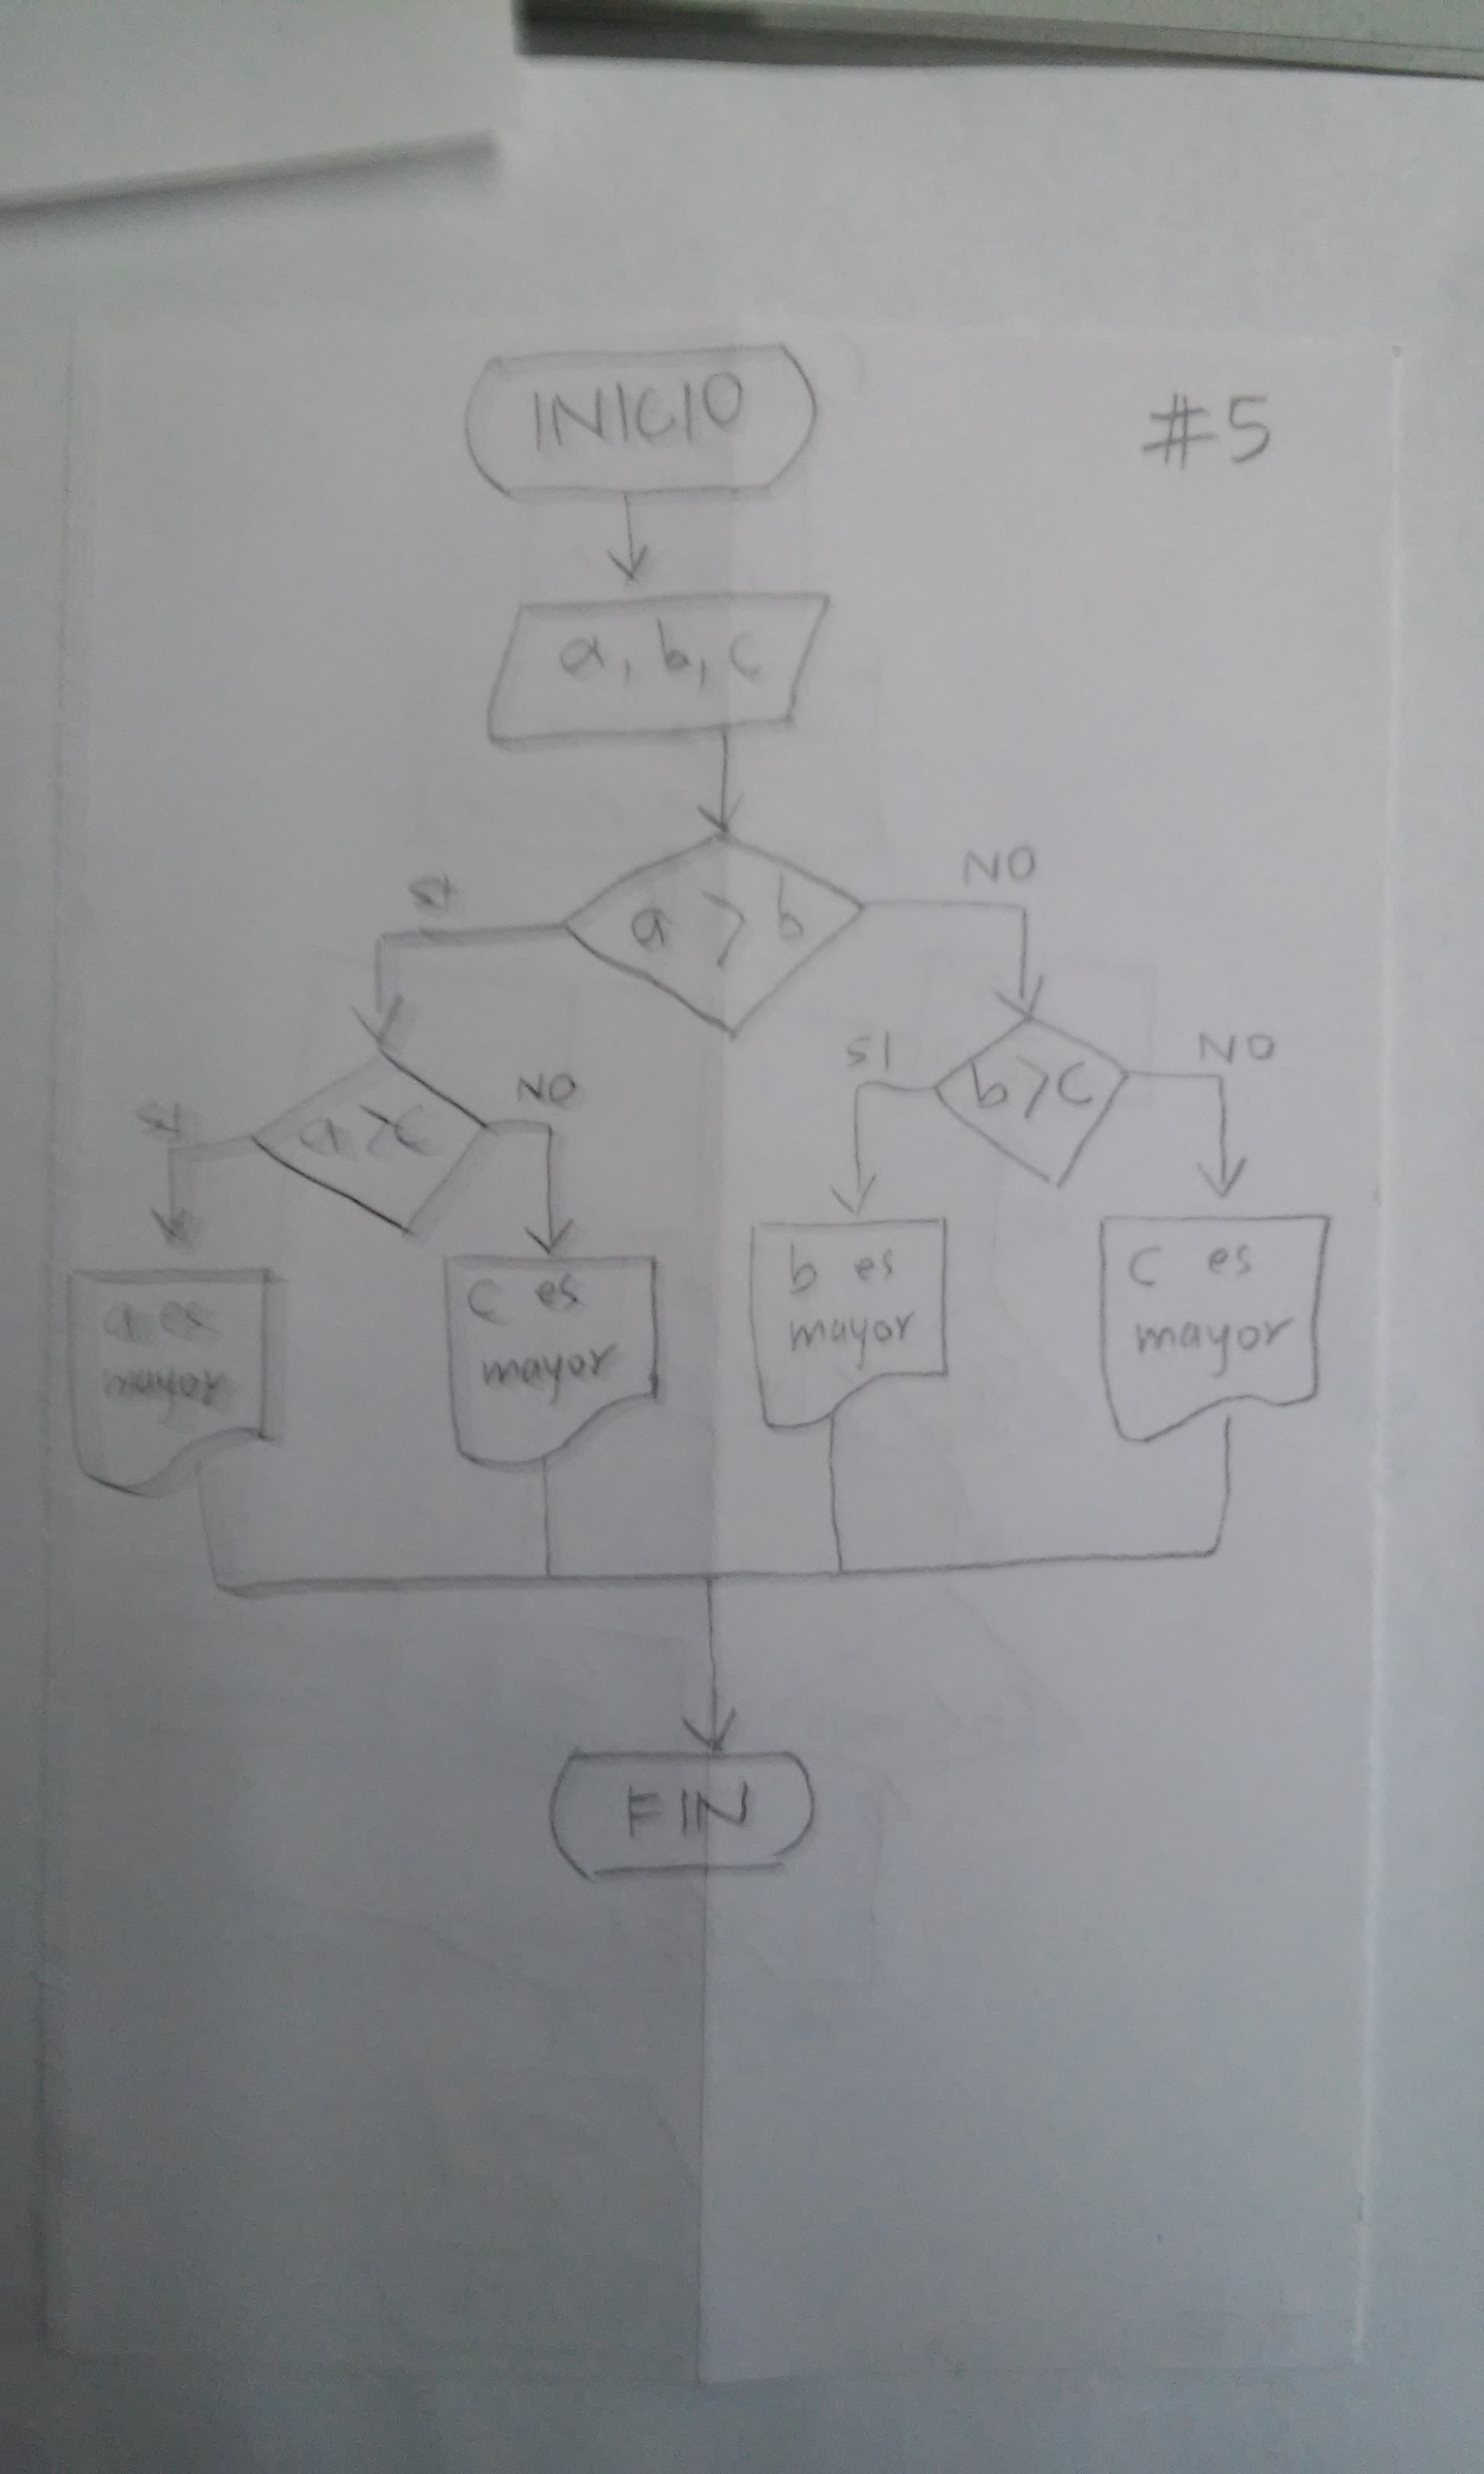 INICIO
#5
a, b, c
a > b
SI
NO
a > c
SI
NO
b > c
SI
NO
a es
mayor
c es
mayor
b es
mayor
c es
mayor
FIN